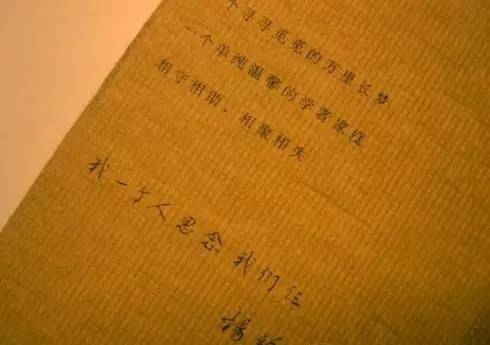 个寻寻觅觅的万里长梦
一个单纯温馨的学者家庭
相守相助，相聚相失
我一个人思念我们仨
杨